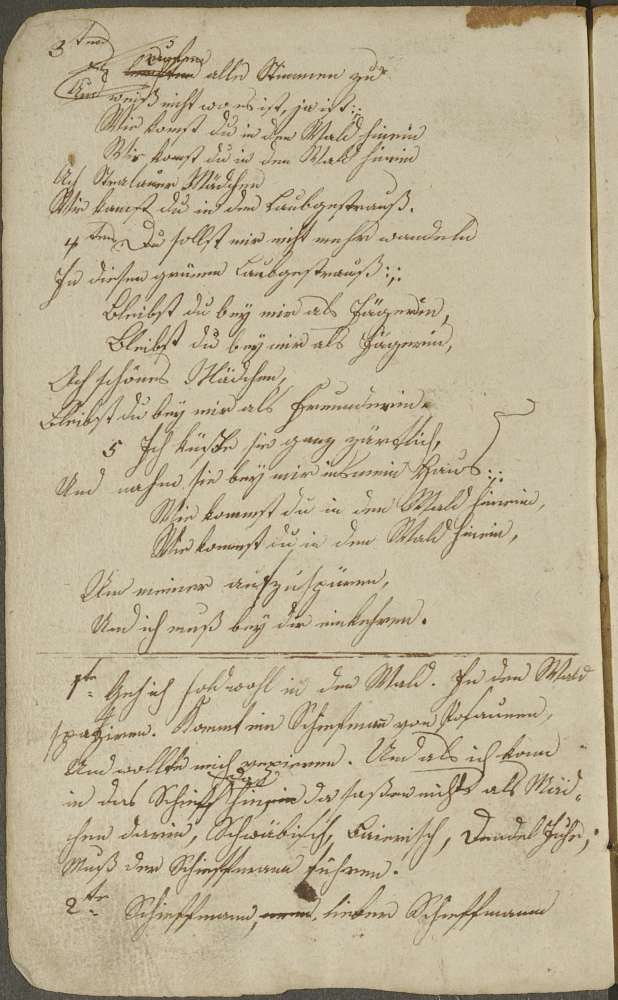 3 ten
alle Stimmen zu
Und weiß nicht wo es ist, ja ist :;:
Wie komst du in den Wald hinein
Wie komst du in den Wald hinein
Ach Stralauer Mädchen
Wie kamst du in den Laubgestrauß.
4 ten Du sollst mir nicht mehr wandeln
In diesen grünen Laubgestrauß :;:
Bleibst du bey mir als Jägerin,
Bleibst du bey mir als Jägerin,
Ach schönes Mädchen,
Bleibst du bey mir als Freunderin.
5 Ich küßte sie ganz zärtlich,
Und nahm sie bey mir in mein Haus :;:
Wie kommst du in den Wald hinein,
Wie kommst du in den Wald hinein,
Um meiner aufzuspüren,
Und ich muß bey dir einkehren.
1te Geh ich sold wohl in den Wald. In den Wald
spaziren. Kommt ein Schiefman von
Und wollte mich vexieren. Und als ich kam
in das Schieff hinein da saßen nichts als Mäd-
chen darin, Schwäbisch, Baierisch, Dendel Juhe,
Muß der Schieffmann führen.
2te Schieffmann, lieber Schieffmann